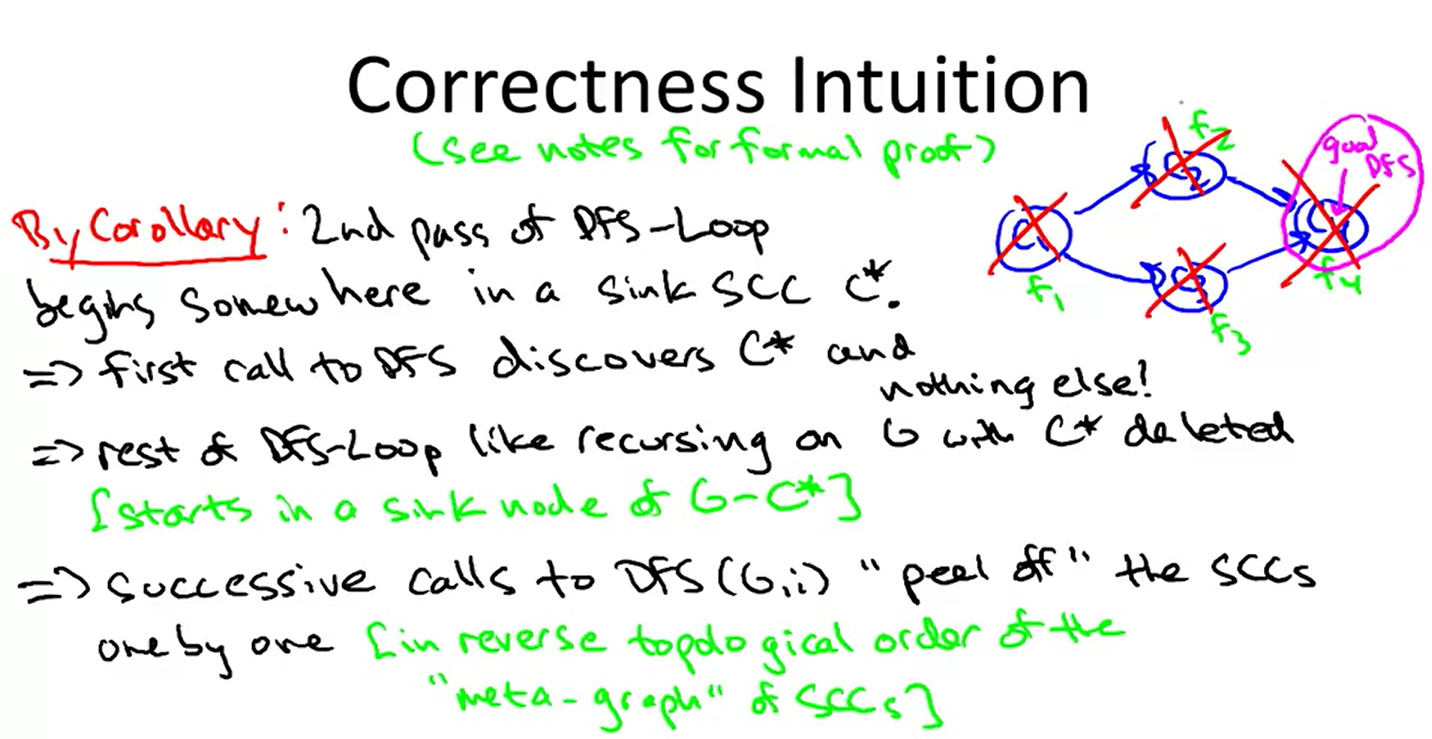 Correctness Intuition
(see notes for formal proof)
By Corollary: 2nd pass of DFS-Loop
begins somewhere in a sink SCC C*.
=> first call to DFS discovers C* and
nothing else!
=> rest of DFS-Loop like recursing on G with C* deleted
[starts in a sink node of G-C*]
=> successive calls to DFS(G,i) "peel off" the SCCs
one by one [in reverse topological order of the
"meta-graph" of SCCs]
f2
goal
DFS
C1
C2
f1
C3
f3
C4
f4